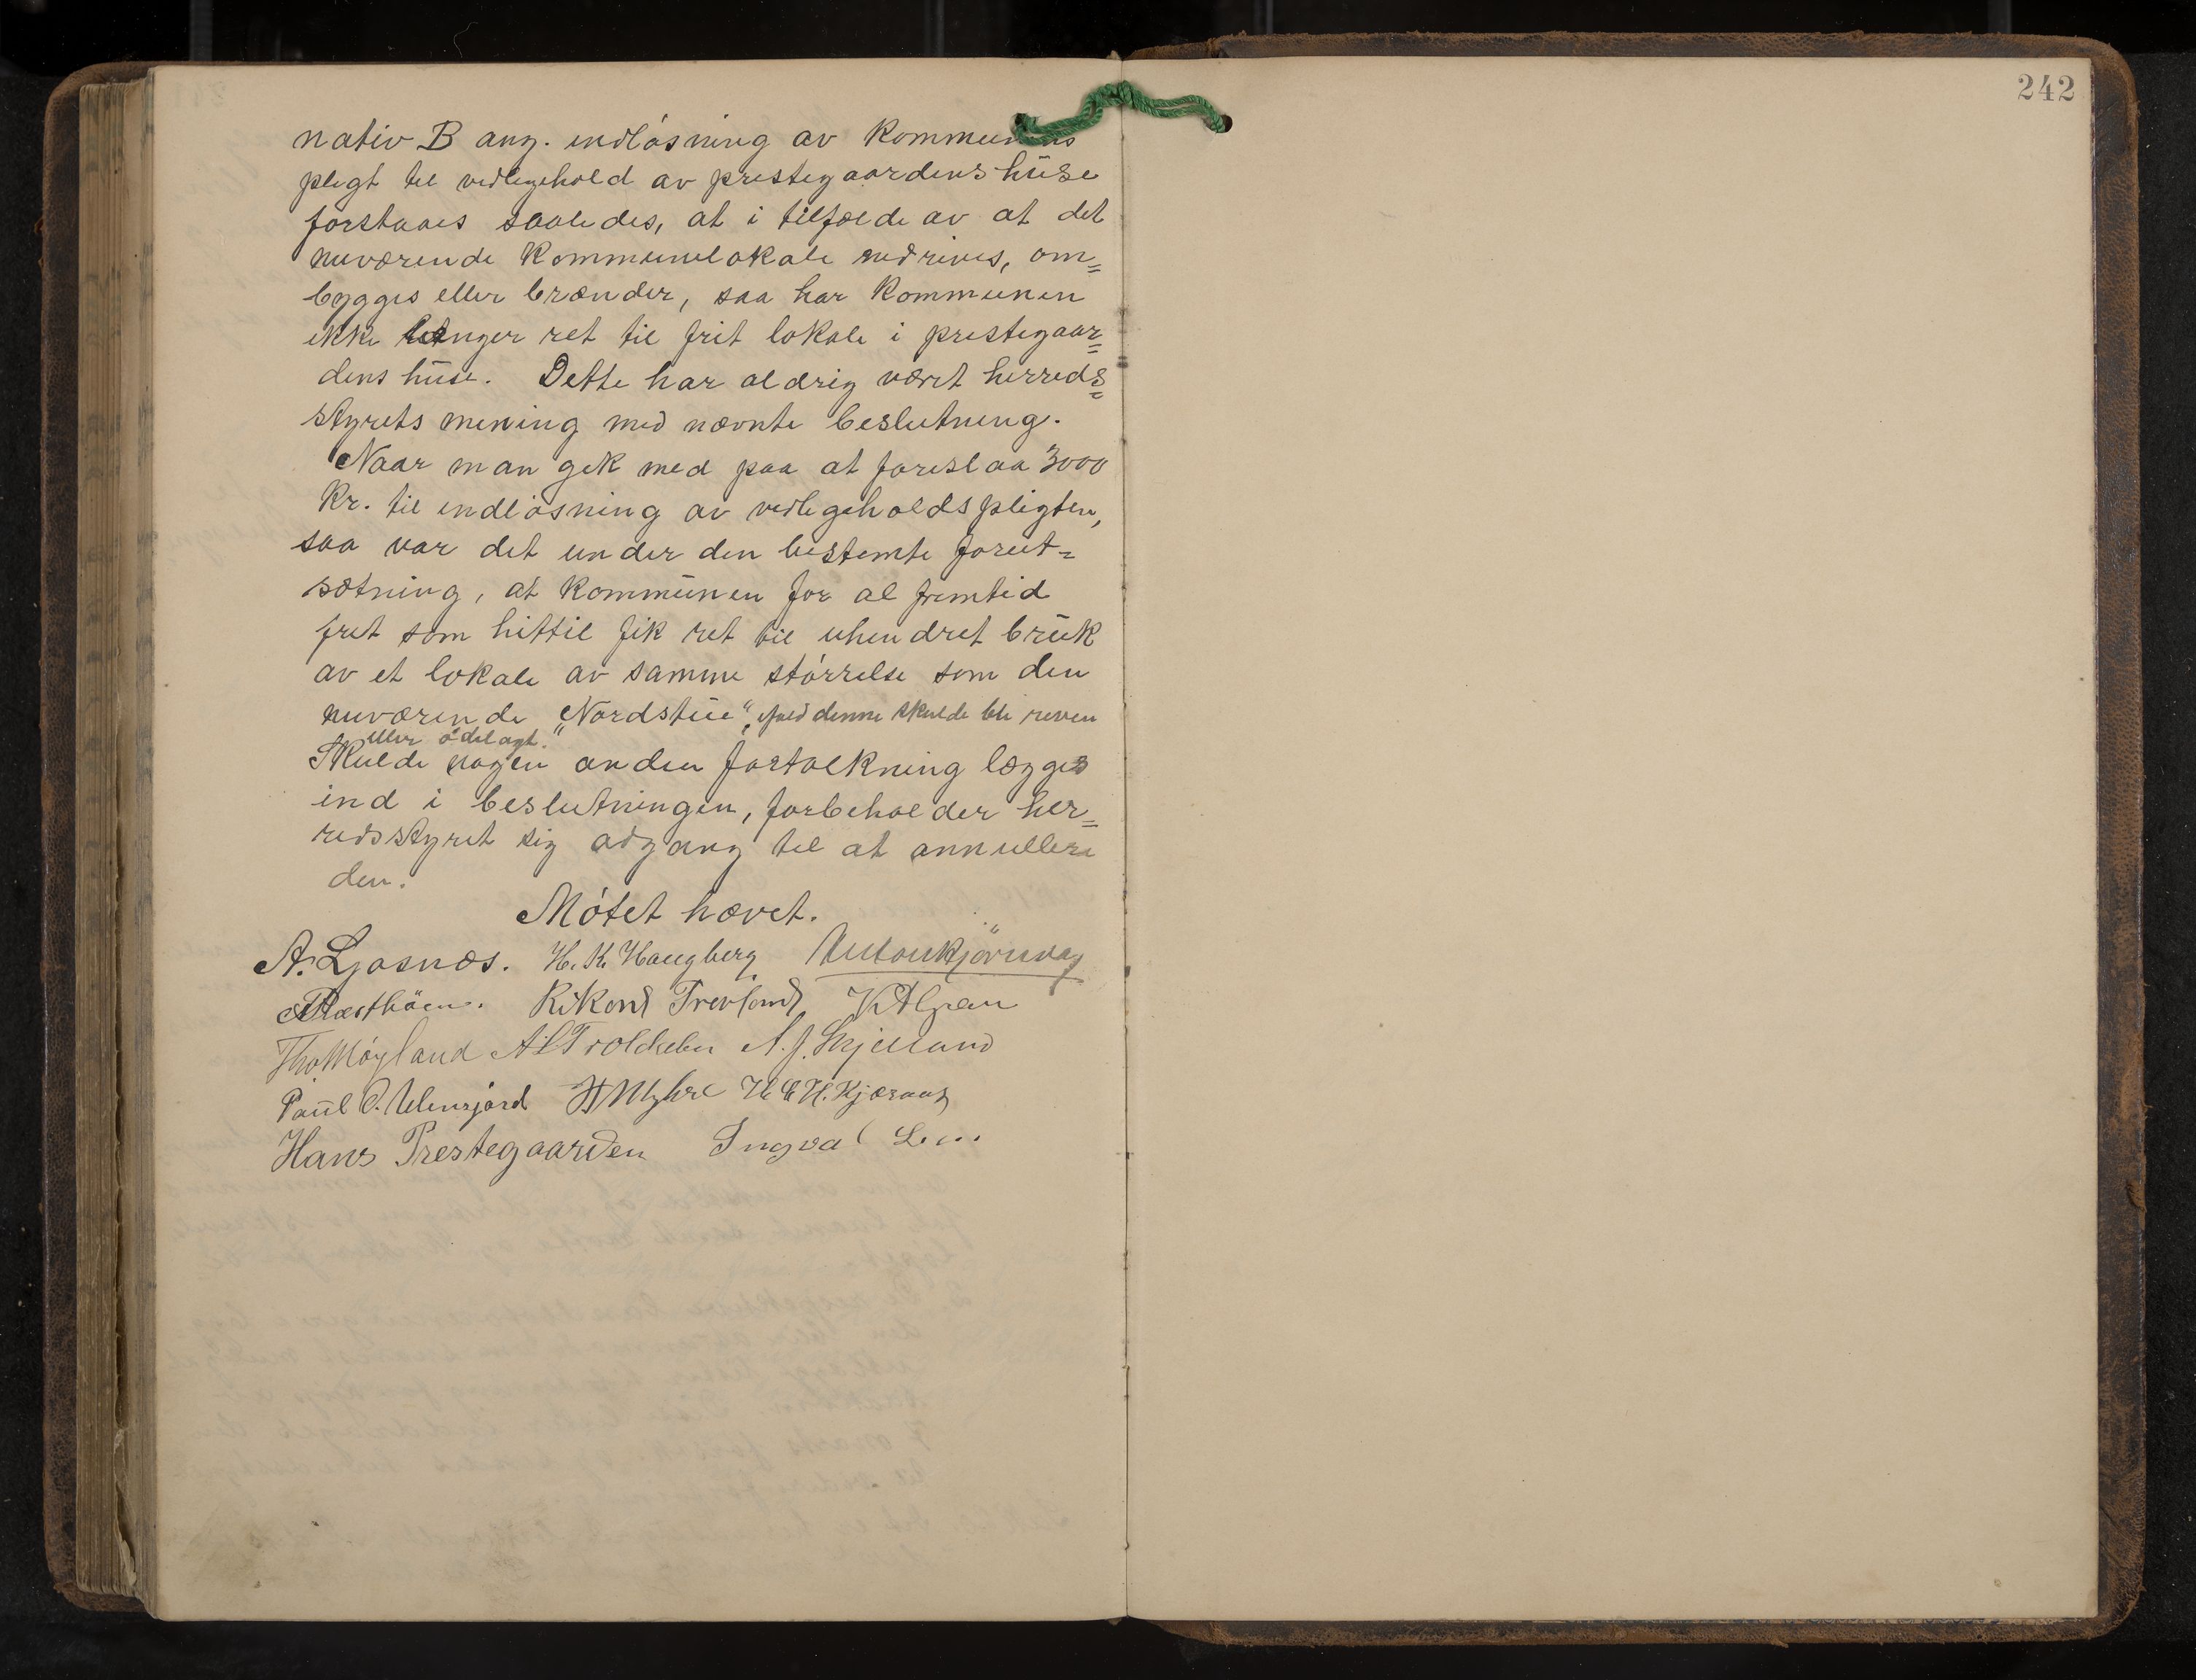 242
nativ B ang. indløsning av kommunens
pligt til vedligehold av prestegaardens huse
forstaaes saaledes, at i tilfælde av at det
nuværende kommunelokale nedrives, om=
bygges eller brænder, saa har kommunen
ikke længer ret til frit lokale i prestegaar=
dens huse. Dette har aldrig været herreds=
styrets mening med nævnte beslutning.
Naar man gik med paa at foreslaa 3000
kr. til indløsning av vedligeholdspligten,
saa var det under den bestemte forut=
sætning, at kommunen for al fremtid
frit som hittil fik ret til uhindret bruk
av et lokale av samme størrelse som den
nuværende „Nordstue", ifald denne skulde bli reven
eller ødelagt."
Skulde nogen anden fortolkning lægges
ind i beslutningen, forbeholder her=
redsstyret sig adgang til at annullere
den.
Møtet hævet.
A. Ljosnæs. H. K. Haugberg
Rikard
Tho Møgland A. J. Skjelland
Paul O. H Myhre
Hans Prestegaarden Ingval